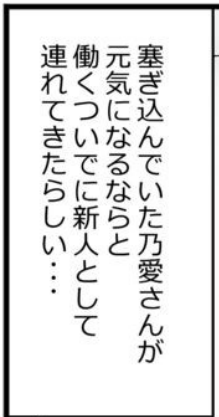 塞ぎ込んでいた乃愛さんが
元気になるならと
働くついでに新人として
連れてきたらしい・・・